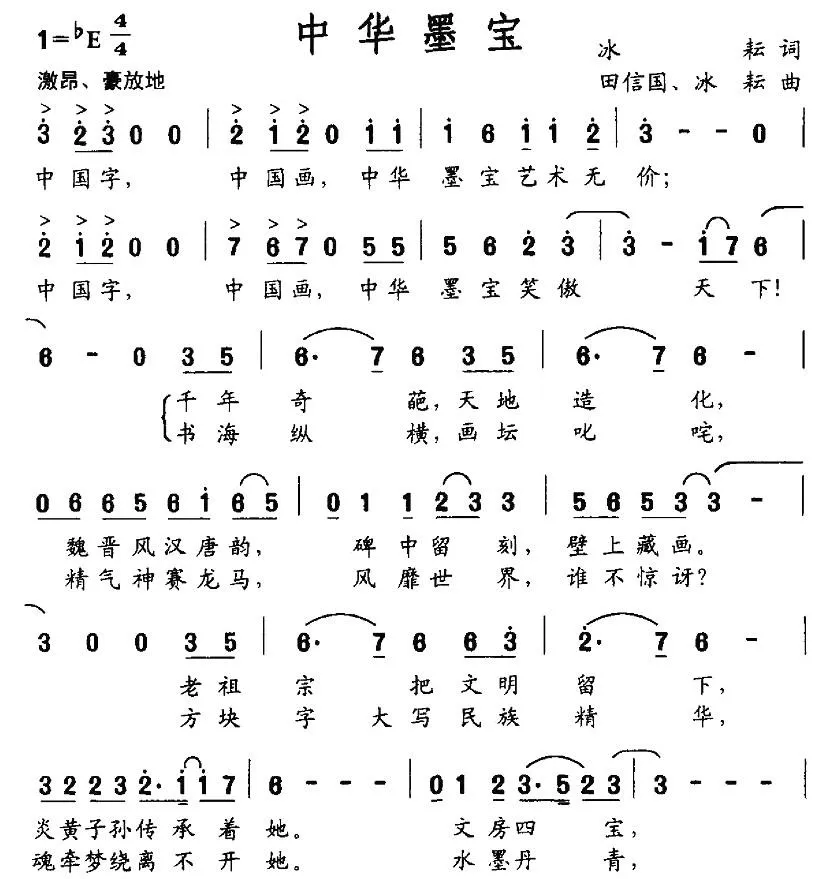 中华墨宝
1=♭E 4/4
冰 耘 词
激昂、豪放地
田信国、冰 耘 曲
3 2 3 0 0 | 2 1 2 0 1 1 | 1 6 1 1 2 | 3 - - 0 |
中国字, 中国画, 中华 墨宝艺术无 价;
2 1 2 0 0 | 7 6 7 0 5 5 | 5 6 2 3 | 3 - 1 7 6 |
中国字, 中国画, 中华 墨宝笑傲 天 下!
6 - 0 3 5 | 6· 7 6 3 5 | 6· 7 6 - |
千年 奇 葩,天地 造 化,
书海 纵 横,画坛 叱 咤,
0 6 6 5 6 1 6 5 | 0 1 1 2 3 3 | 5 6 5 3 3 - |
魏晋风汉唐韵, 碑中留 刻, 壁上藏画。
精气神赛龙马, 风靡世 界, 谁不惊讶?
3 0 0 3 5 | 6· 7 6 6 3 | 2· 7 6 - |
老祖 宗 把文明 留 下,
方块 字 大写民族 精 华,
3 2 2 3 2· 1 1 7 | 6 - - - | 0 1 2 3· 5 2 3 | 3 - - - |
炎黄子孙传承着 她。 文房四 宝,
魂牵梦绕离不开 她。 水墨丹 青,